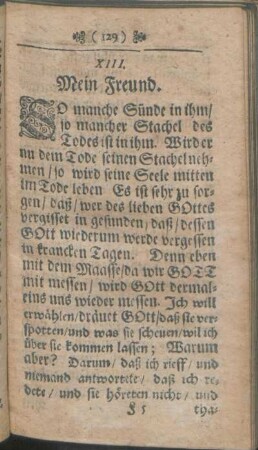 ( 129 )
XIII.
Mein Freund.
SO manche Sünde in ihm/
so mancher Stachel des
Todes ist in ihm. Wird er
nn dem Tode seinen Stachel neh-
men / so wird seine Seele mitten
im Tode leben Es ist sehr zu sor-
gen / daß / wer des lieben GOttes
vergisset in gesunden, daß / dessen
GOtt wiederum werde vergessen
in krancken Tagen. Denn eben
mit dem Maasse / da wir GOTT
mit messen / wird GOtt dermal-
eins uns wieder messen. Ich will
erwählen / dräuet GOtt / daß sie ver-
spotten / und was sie scheuen / wil ich
über sie kommen lassen; Warum
aber? Darum / daß ich rieff / und
niemand antwortete / daß ich re-
dete / und sie höreten nicht / und
tha-